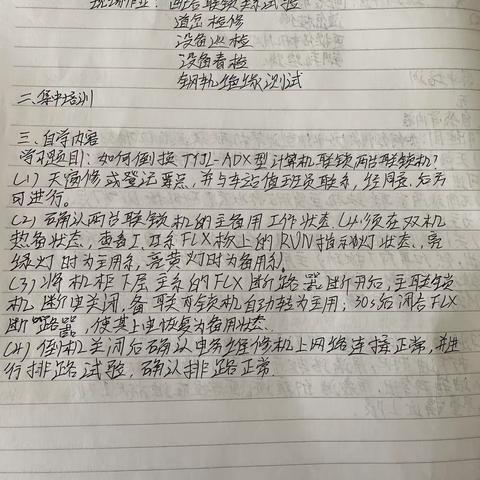 现场作业：两台联锁主备试验
道岔检修
设备巡检
设备春检
钢轨绝缘测试
二、集中培训
三、自学内容
学习题目：如何倒换TYJL-ADX型计算机联锁两台联锁机?
(1) 天窗修或登记要点，并与车站值班员联系，经同意后方
可进行。
(2) 确认两台联锁机的主备用工作状态，必须在双机
热备状态，查看I、II系FLX板上的RUN指示灯状态，亮
绿灯时为主用系，亮黄灯时为备用系。
(3) 将机柜下层主系的FLX断路器断开后，主联锁
机断电关闭，备联锁机自动转为主用；30s后闭合FLX
断路器，使其上电恢复为备用状态。
(4) 倒机关闭后确认电务维修机上网络连接正常，并进
行排路试验，确认排路正常。